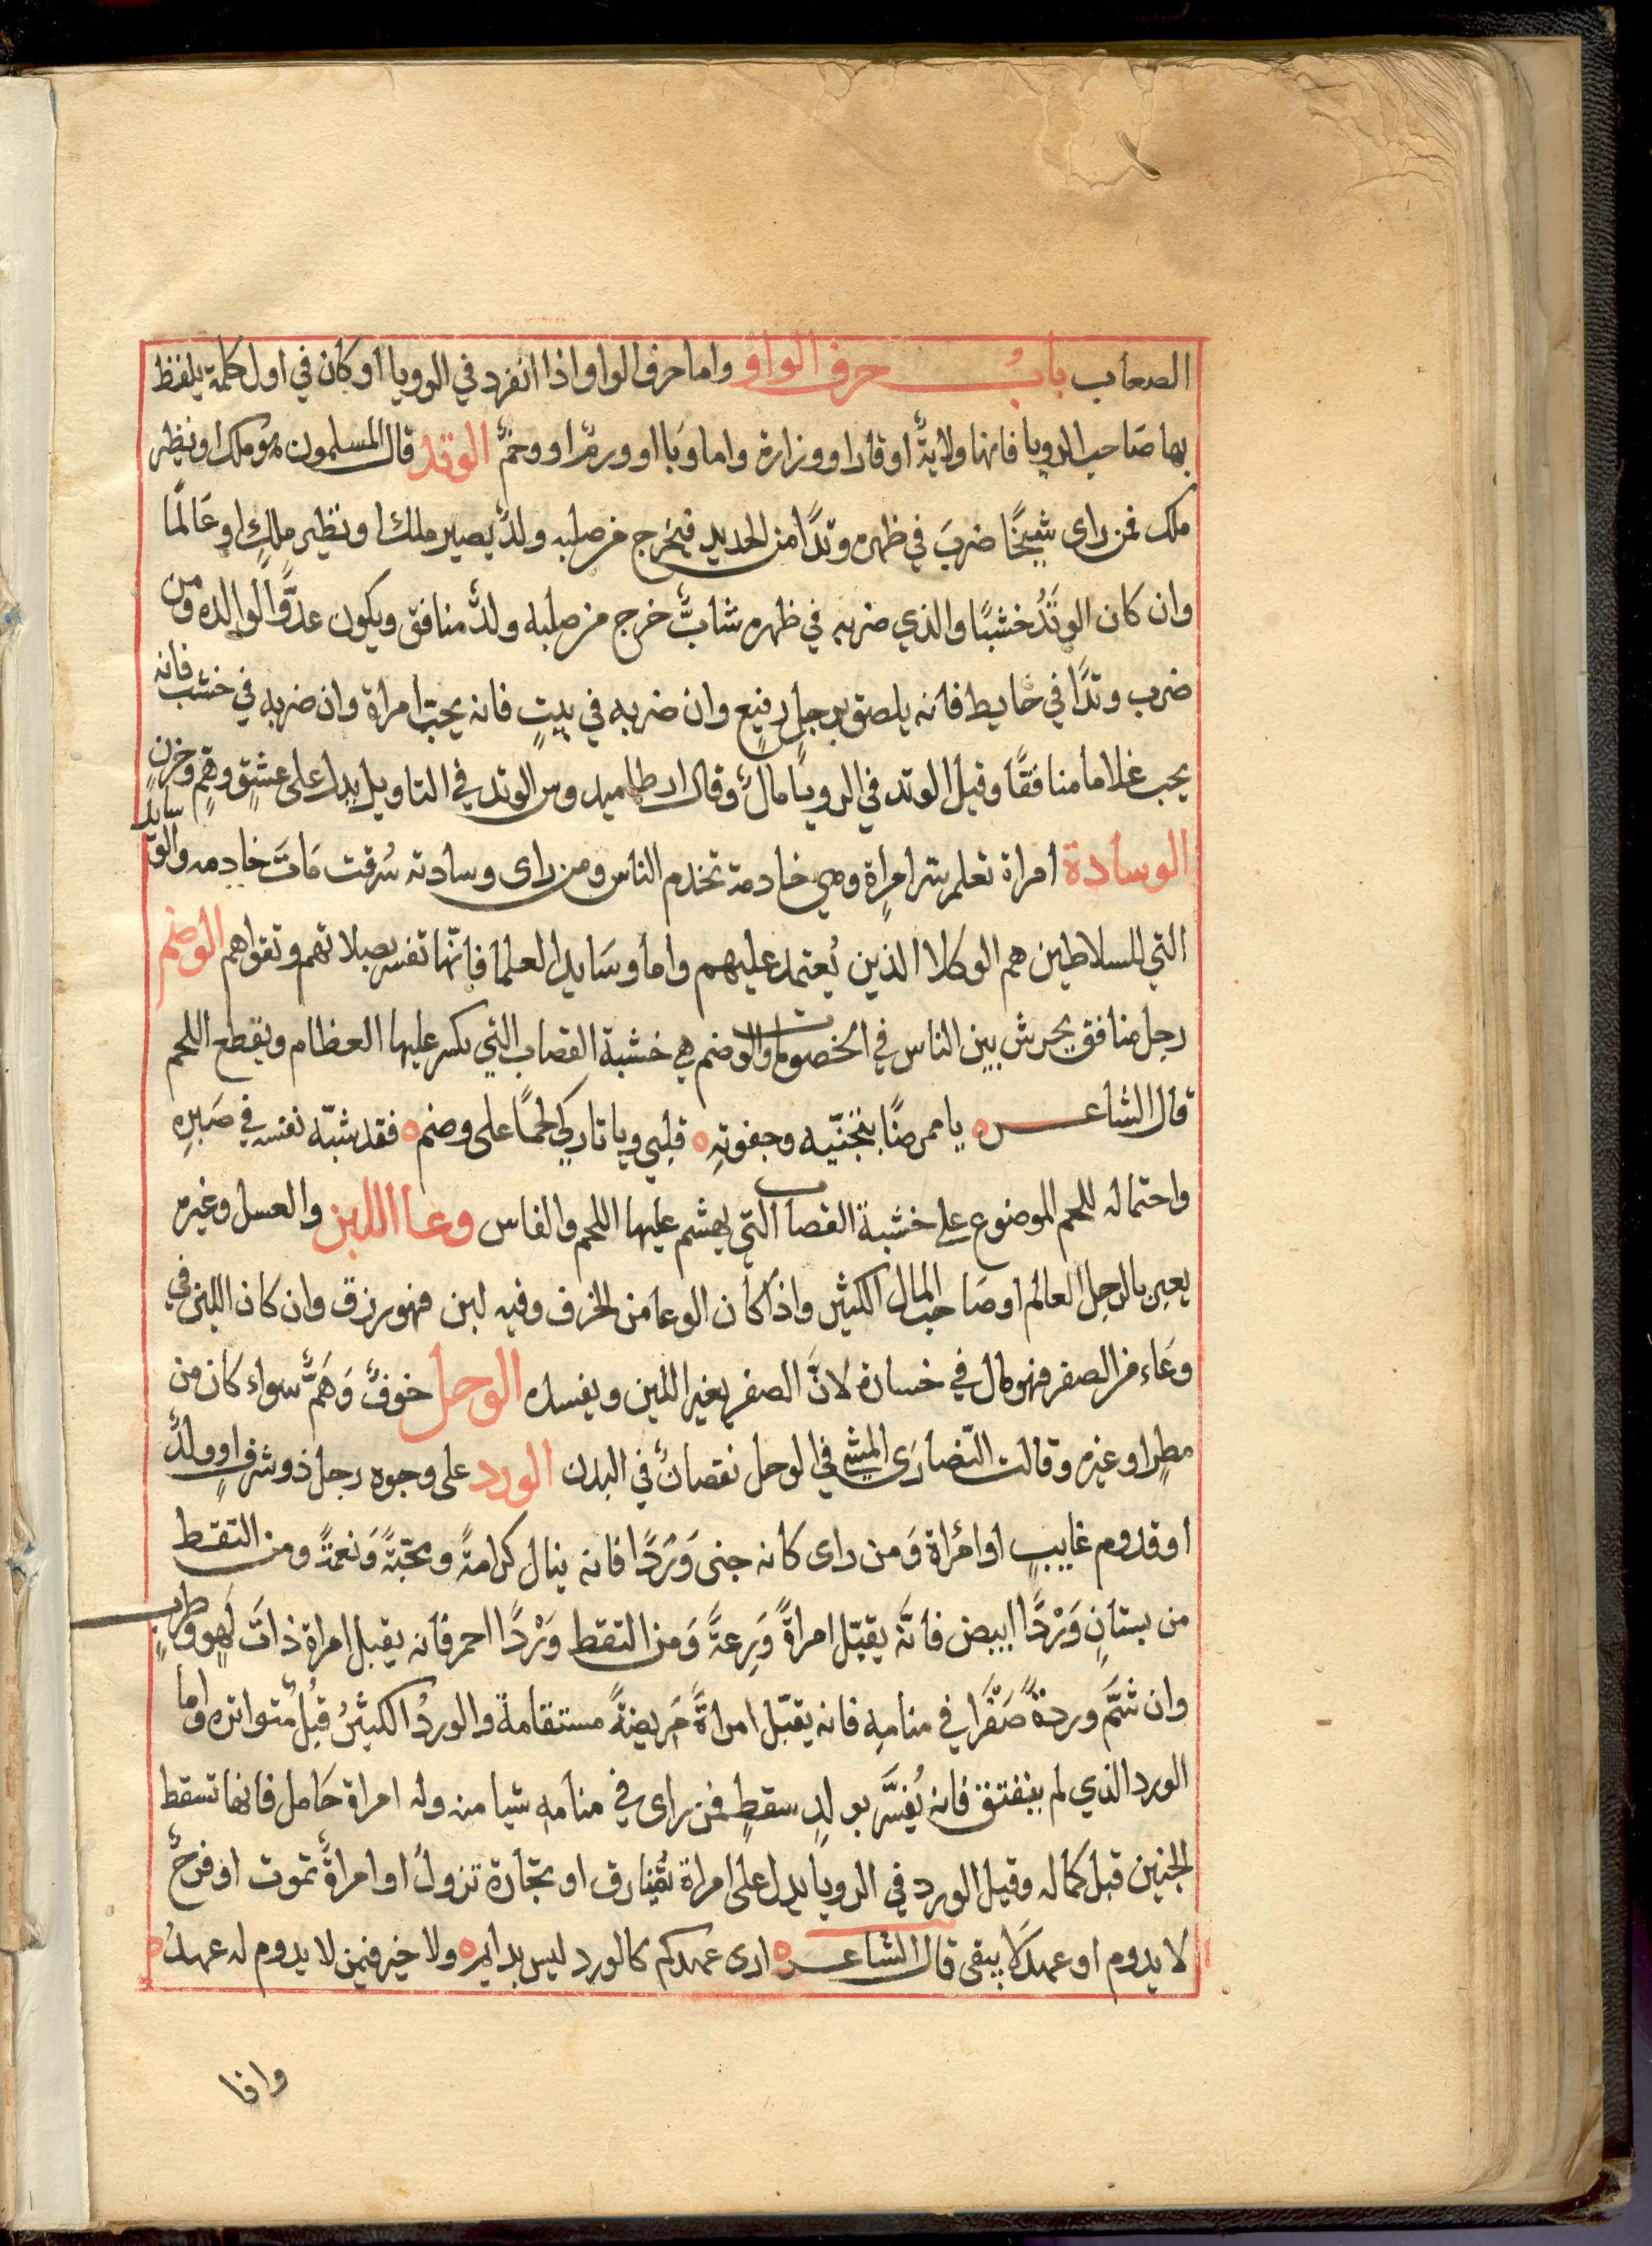 الصعاب باب حرف الواو واما حرف الواو اذا انفرد في الرويا او كان في اول كلمة يلفظ
بها صَاحب الرويا فانها ولايةٌ او قار او وزارة واما وَبا او ورمٌ او وخمٌ الوتد قال المسلمون هو ملك او نظير
ملك فمن راى شيخًا ضربَ في ظهره وتدًا من الحديد فيخرج من صلبه ولدٌ يصير ملك او نظير ملكٍ او عَالمًا
وان كان الوتَدُ خشبًا والذي ضربه في ظهره شابٌّ خرج من صلبه ولدٌ منافق ويكون عدوًّا لوالده ومن
ضرب وتدًا في حايط فانه يلصق برجلٍ رفيعٍ وان ضربه في بيتٍ فانه يحبّ امراة وان ضربه في خشب فانه
يحب غلاما منافقًا وقيل الوتد في الرويا مالٌ وقال ارطاميدوس الوتد في التاويل يدل على عشقٍ وهمٍّ وحزنٍ
الوسادة امراة تعلم بسر امرٍاة وهي خادمة تخدم الناس ومن راى وسادته سُرقت مَاتَ خادمه والوسايد
التي للسلاطين هم الوكلا الذين يُعتمد عليهم واما وسَايد العلما فانّها تفسر بصلاتهم وتقواهم الوضم
رجل منافق يحرش بين الناس في الخصومات والوضم هي خشبة القصاب التي يكسر عليها العظام ويقطع اللحم
قال الشاعر ه يا ممرضًا بتجنّيه وجفوتهِ ه قلبي ويا تاركي لحمًا على وضم ه فقد شبّه نفسه في صَبرِه
واحتماله للحم الموضوع على خشبة القصاب التي يهشم عليها اللحم والفاس وعا اللبن والعسل وغيره
يعبر بالرجل العالم او صَاحب المال الكثير واذا كان الوعا من الخزف وفيه لبن فهو رزق وان كان اللبن في
وعَاء من الصفر فهو مال في خسارة لانَّ الصفر يغير اللبن ويفسده الوحل خوفٌ وَهَمٌّ سواء كان من
مطرٍ او غيره وقالت النّصارَى المشي في الوحل نقصانٌ في البدن الورد على وجوه رجل ذو شرفٍ او ولدٌ
او قدوم غايبٍ او امْراة وَمن راى كانه جنى وَرْدًا فانه ينال كرامةً ومحبّةً وَنعمةً ومن التقط
من بستانٍ وَرْدًا ابيض فانَّه يقبّل امراةً وَرِعةً وَمن التقط وَرْدًا احمر فانه يقبل امراة ذاتَ لَهوٍ وطربٍ
وان شمَّ وردةً صَفْرَا في منامِه فانه يقبّل امراةً مَريضةً مستقامة والوردُ الكثيرُ قُبلٌ متواتره واما
الورد الذي لم ينفتق فانه يُفسَّر بولدٍ سقطٍ فمن راى في منامه شيا منه وله امراة حَامل فانها تسقط
الجنين قبل كماله وقيل الورد في الرويا يدل على امراة تُفارق او تجارة تزولُ او امراةً تموت او فرحٌ
لا يدوم او عهدٌ لا يبقى قال الشاعر ه ارى عهدكم كالورد ليس بدايم ه ولا خير فيمن لا يدوم له عهدُ ه